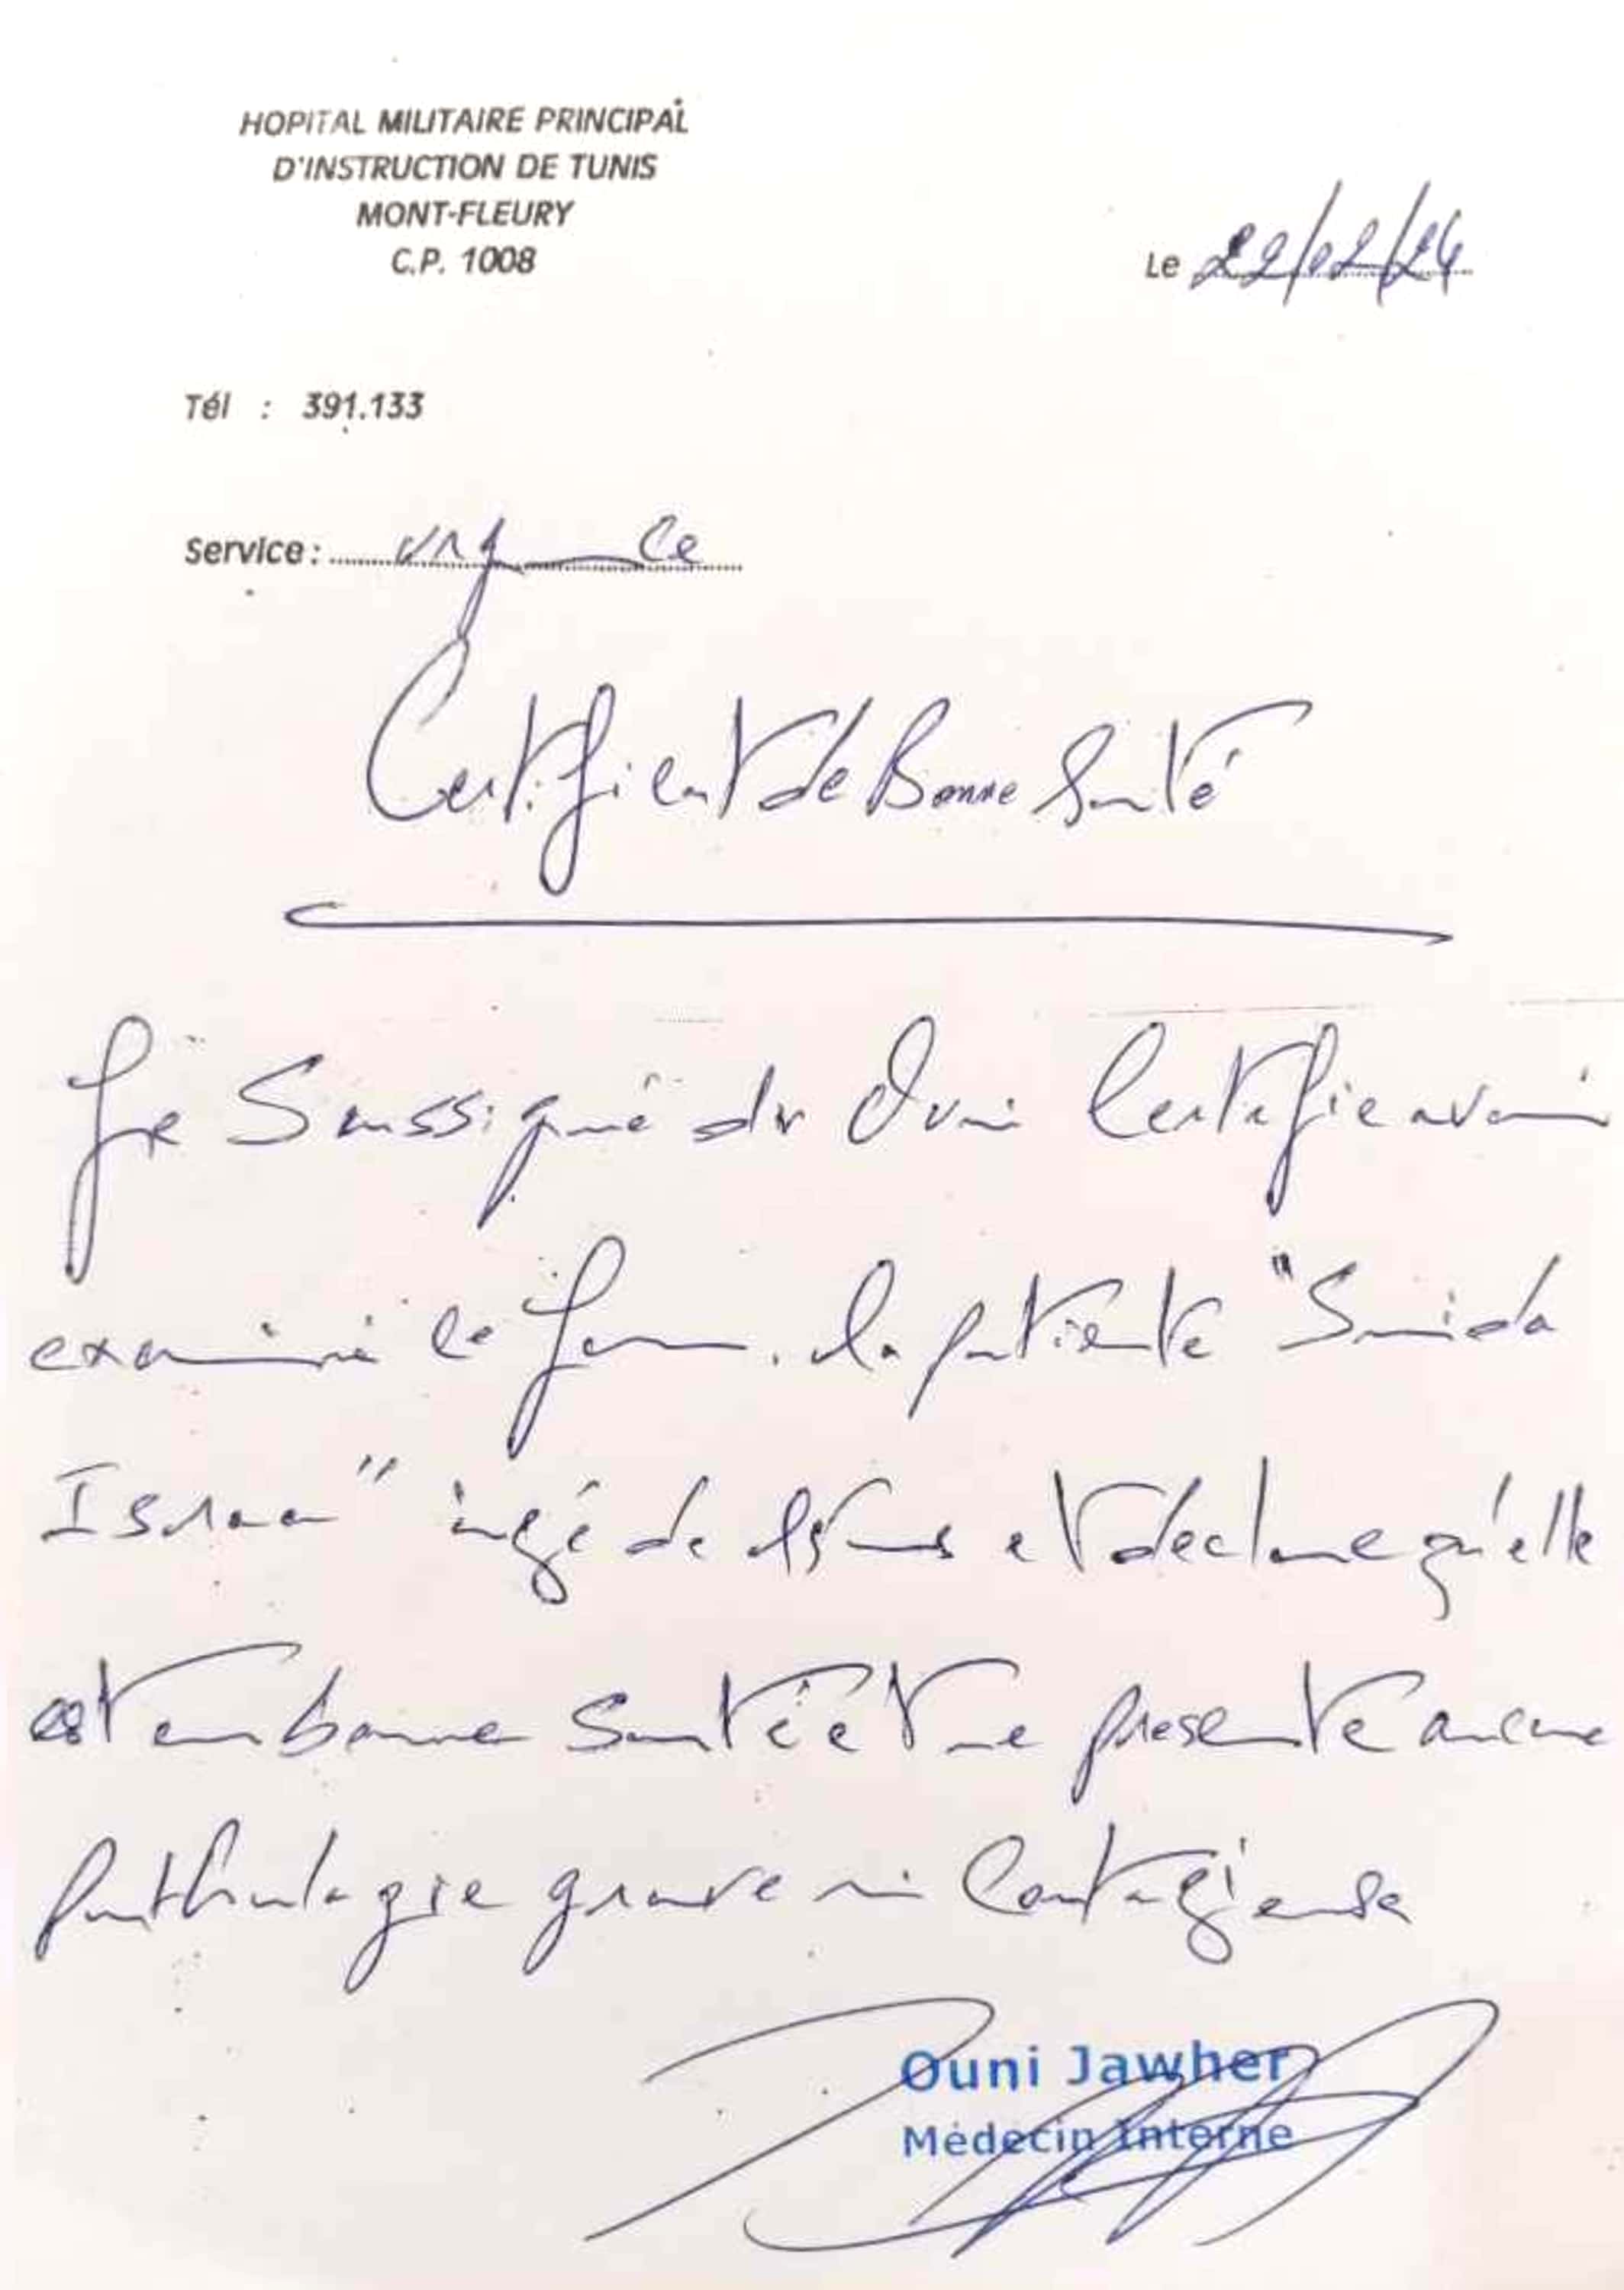 HOPITAL MILITAIRE PRINCIPAL
D'INSTRUCTION DE TUNIS
MONT-FLEURY
C.P. 1008
Le 22/02/24
Tél : 391.133
Service : urgence
Certificat de Bonne Santé
Je Soussigné dr Ouni Certifie avoir
examiné ce jour la patiente "Smida
Israa" âgé de ans et declare qu'elle
est en bonne santé et ne presente aucune
pathologie grave ni Contagieuse
Ouni Jawher
Médecin Interne